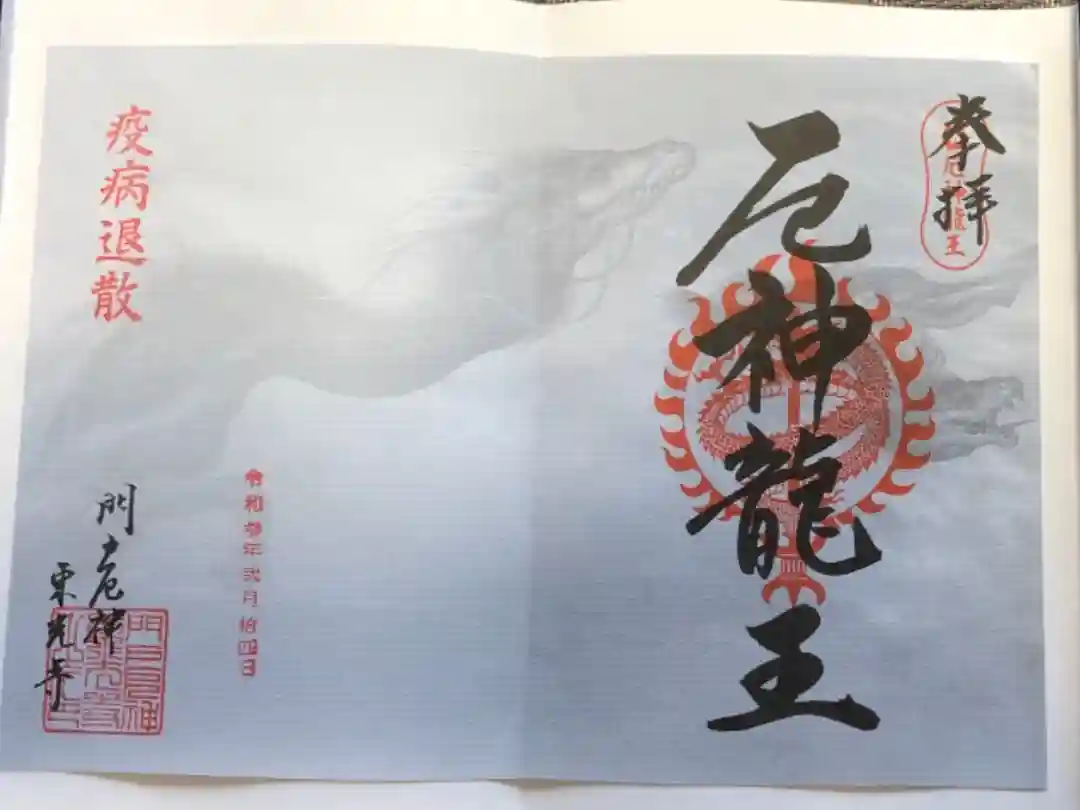 奉拝
厄神龍王
厄神龍王
令和参年弐月拾四日
疫病退散
門戸厄神
東光寺